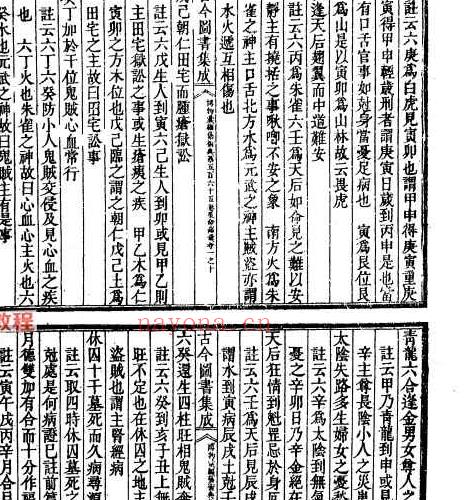 註云六庚為白虎見寅卯也謂甲申得庚寅重庚
寅得甲申輕歲刑者謂庚寅日歲到丙申是也當
有口舌官事如尅身當憂足病也 寅為艮位艮
為山是以寅卯為山林故云畏虎
逢天后翅翼而中道難安
註云六丙為朱雀六壬為天后如見之難以安
靜主有撓之事啾唧不安之象 南方火為朱
雀之神主口舌北方水為元武之神主賊盜亦謂
水火遞互相傷也
古今圖書集成
己朝仁田宅而腫瘡獄訟
註云六戊生人到寅六己生人到卯或見甲乙則
田宅獄訟之事或生瘡痍之疾 甲乙木為仁
寅卯之方木位也戊己臨之謂之朝仁戊己土為
田宅之主故曰田宅訟事
六丁加於干位鬼賊心血常行
註云六丁六癸防小人鬼賊交侵及見心血之疾
也 六丁火也朱雀之神故曰心血心主火也六
癸水也元武之神故曰鬼賊主有是事
教程
nayona.cn
青龍六合逢金男女尊人之
註云甲乃青龍到申或見
辛主尊長陰小人之災
太陰失路多生婦女之憂
註云六辛為太陰到無氣
憂之辛卯日乃辛金絕在
天后狂情到魁罡忌於身
註云六壬為天后見辰戌
謂水到寅病辰戌土尅
古今圖書集成
六癸還生四柱旺相鬼賊
註云六癸到亥子丑上無
旺不定也在休囚之地主
盜賊也謂主腎經病
休囚十干墓死而久病尋源
註云取四時休囚墓死之
尅處是何病證已註前篇
月德雙加有合而十分作福
註云寅午戌丙辛月合